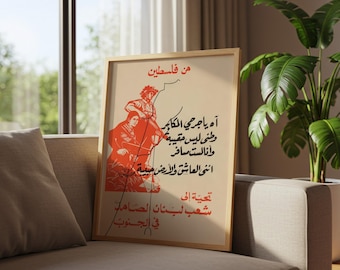 من فلسطين
آه ياجرحي المكابر
وطني ليس حقيبة
وانا لست مسافر
انني العاشق والأرض حبيبة
تحية الى
شعب لبنان الصامد
في الجنوب